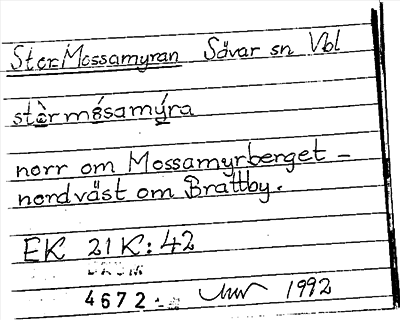 Stor-Mossamyran Sävar sn Vbl
stòr mósamýra
norr om Mossamyrberget -
nordväst om Brattby.
EK 21K:42
4672 1992